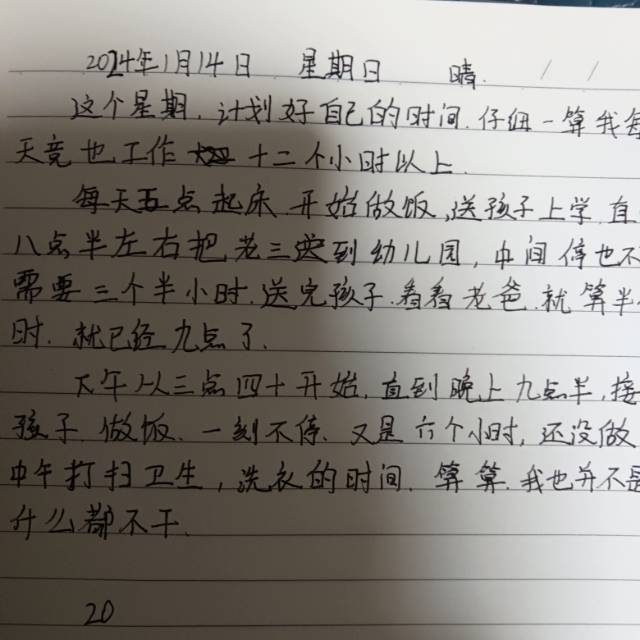 2024年1月14日 星期日 晴.
这个星期.计划好自己的时间.仔细一算我每
天竟也工作 十二个小时以上.
每天五点起床.开始做饭,送孩子上学.直
八点半左右把老三送到幼儿园,中间停也不
需要三个半小时.送完孩子.看看老爸.就算半
时.就已经九点了.
下午从三点四十开始.直到晚上九点半,接
孩子.做饭.一刻不停.又是六个小时,还没做
中午打扫卫生,洗衣的时间.算算.我也并不是
什么都不干.
20